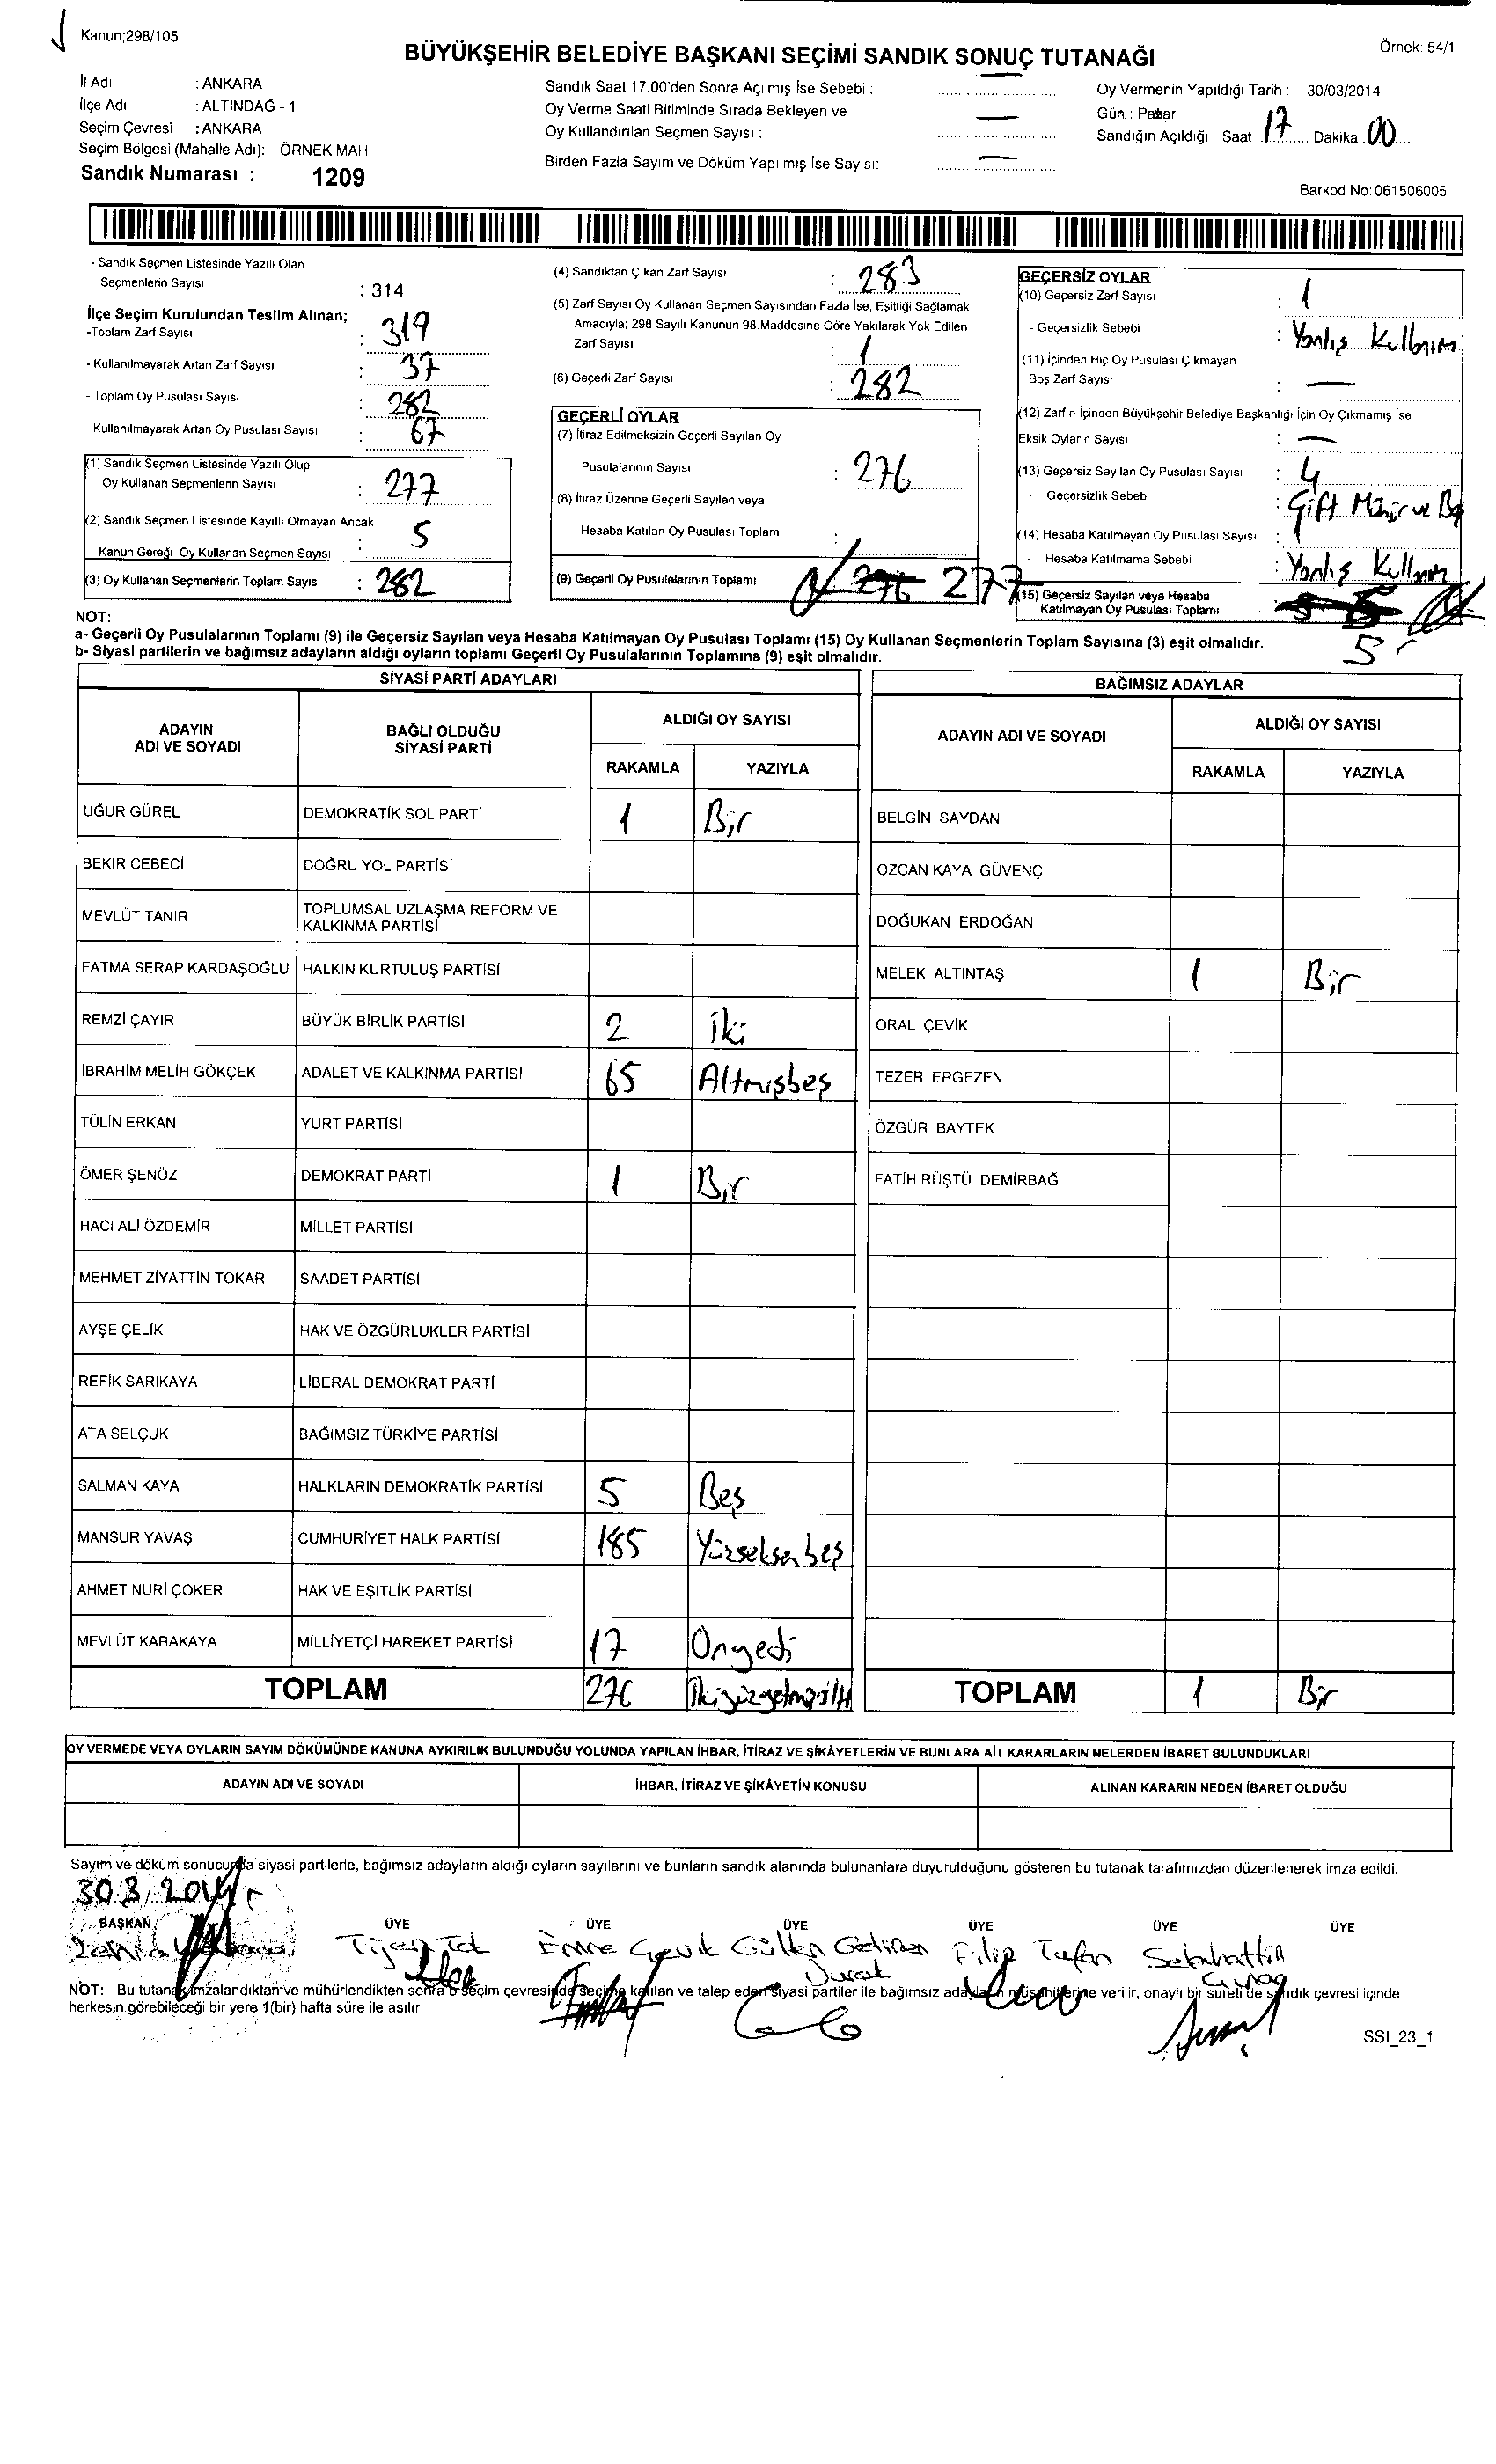 Kanun;298/105
BÜYÜKŞEHİR BELEDİYE BAŞKANI SEÇİMİ SANDIK SONUÇ TUTANAĞI
Örnek: 54/1
İl Adı : ANKARA
İlçe Adı : ALTINDAĞ - 1
Seçim Çevresi : ANKARA
Seçim Bölgesi (Mahalle Adı): ÖRNEK MAH.
Sandık Numarası : 1209
Sandık Saat 17.00'den Sonra Açılmış İse Sebebi : —
Oy Verme Saati Bitiminde Sırada Bekleyen ve
Oy Kullandırılan Seçmen Sayısı : —
Birden Fazla Sayım ve Döküm Yapılmış İse Sayısı: —
Oy Vermenin Yapıldığı Tarih : 30/03/2014
Gün : Pazar
Sandığın Açıldığı Saat : 17 Dakika: 00
Barkod No: 061506005
- Sandık Seçmen Listesinde Yazılı Olan
Seçmenlerin Sayısı : 314
İlçe Seçim Kurulundan Teslim Alınan;
-Toplam Zarf Sayısı : 319
- Kullanılmayarak Artan Zarf Sayısı : 37
- Toplam Oy Pusulası Sayısı : 282
- Kullanılmayarak Artan Oy Pusulası Sayısı : 67
(1) Sandık Seçmen Listesinde Yazılı Olup
Oy Kullanan Seçmenlerin Sayısı : 277
(2) Sandık Seçmen Listesinde Kayıtlı Olmayan Ancak
Kanun Gereği Oy Kullanan Seçmen Sayısı : 5
(3) Oy Kullanan Seçmenlerin Toplam Sayısı : 282
(4) Sandıktan Çıkan Zarf Sayısı : 283
(5) Zarf Sayısı Oy Kullanan Seçmen Sayısından Fazla İse, Eşitliği Sağlamak
Amacıyla; 298 Sayılı Kanunun 98.Maddesine Göre Yakılarak Yok Edilen
Zarf Sayısı : 1
(6) Geçerli Zarf Sayısı : 282
GEÇERLİ OYLAR
(7) İtiraz Edilmeksizin Geçerli Sayılan Oy
Pusulalarının Sayısı : 276
(8) İtiraz Üzerine Geçerli Sayılan veya
Hesaba Katılan Oy Pusulası Toplamı : 1
(9) Geçerli Oy Pusulalarının Toplamı 276 277
GEÇERSİZ OYLAR
(10) Geçersiz Zarf Sayısı : 1
- Geçersizlik Sebebi : Yanlış Kullanım
(11) İçinden Hiç Oy Pusulası Çıkmayan
Boş Zarf Sayısı : —
(12) Zarfın İçinden Büyükşehir Belediye Başkanlığı İçin Oy Çıkmamış İse
Eksik Oyların Sayısı : —
(13) Geçersiz Sayılan Oy Pusulası Sayısı : 4
- Geçersizlik Sebebi : Çift Mühür ve Boş
(14) Hesaba Katılmayan Oy Pusulası Sayısı : 1
- Hesaba Katılmama Sebebi : Yanlış Kullanım
(15) Geçersiz Sayılan veya Hesaba
Katılmayan Oy Pusulası Toplamı 5
NOT:
a- Geçerli Oy Pusulalarının Toplamı (9) ile Geçersiz Sayılan veya Hesaba Katılmayan Oy Pusulası Toplamı (15) Oy Kullanan Seçmenlerin Toplam Sayısına (3) eşit olmalıdır.
b- Siyasi partilerin ve bağımsız adayların aldığı oyların toplamı Geçerli Oy Pusulalarının Toplamına (9) eşit olmalıdır.
SİYASİ PARTİ ADAYLARI
ADAYIN ADI VE SOYADI BAĞLI OLDUĞU SİYASİ PARTİ ALDIĞI OY SAYISI
RAKAMLA YAZIYLA
UĞUR GÜREL DEMOKRATİK SOL PARTİ 1 Bir
BEKİR CEBECİ DOĞRU YOL PARTİSİ
MEVLÜT TANIR TOPLUMSAL UZLAŞMA REFORM VE KALKINMA PARTİSİ
FATMA SERAP KARDAŞOĞLU HALKIN KURTULUŞ PARTİSİ
REMZİ ÇAYIR BÜYÜK BİRLİK PARTİSİ 2 İki
İBRAHİM MELİH GÖKÇEK ADALET VE KALKINMA PARTİSİ 65 Altmışbeş
TÜLİN ERKAN YURT PARTİSİ
ÖMER ŞENÖZ DEMOKRAT PARTİ 1 Bir
HACI ALİ ÖZDEMİR MİLLET PARTİSİ
MEHMET ZİYATTİN TOKAR SAADET PARTİSİ
AYŞE ÇELİK HAK VE ÖZGÜRLÜKLER PARTİSİ
REFİK SARIKAYA LİBERAL DEMOKRAT PARTİ
ATA SELÇUK BAĞIMSIZ TÜRKİYE PARTİSİ
SALMAN KAYA HALKLARIN DEMOKRATİK PARTİSİ 5 Beş
MANSUR YAVAŞ CUMHURİYET HALK PARTİSİ 185 Yüzseksenbeş
AHMET NURİ ÇOKER HAK VE EŞİTLİK PARTİSİ
MEVLÜT KARAKAYA MİLLİYETÇİ HAREKET PARTİSİ 17 Onyedi
TOPLAM 276 İkiyüzyetmişaltı
BAĞIMSIZ ADAYLAR
ADAYIN ADI VE SOYADI ALDIĞI OY SAYISI
RAKAMLA YAZIYLA
BELGİN SAYDAN
ÖZCAN KAYA GÜVENÇ
DOĞUKAN ERDOĞAN
MELEK ALTINTAŞ 1 Bir
ORAL ÇEVİK
TEZER ERGEZEN
ÖZGÜR BAYTEK
FATİH RÜŞTÜ DEMİRBAĞ
TOPLAM 1 Bir
OY VERMEDE VEYA OYLARIN SAYIM DÖKÜMÜNDE KANUNA AYKIRILIK BULUNDUĞU YOLUNDA YAPILAN İHBAR, İTİRAZ VE ŞİKÂYETLERİN VE BUNLARA AİT KARARLARIN NELERDEN İBARET BULUNDUKLARI
ADAYIN ADI VE SOYADI İHBAR, İTİRAZ VE ŞİKÂYETİN KONUSU ALINAN KARARIN NEDEN İBARET OLDUĞU
Sayım ve döküm sonucunda siyasi partilerle, bağımsız adayların aldığı oyların sayılarını ve bunların sandık alanında bulunanlara duyurulduğunu gösteren bu tutanak tarafımızdan düzenlenerek imza edildi.
30.3.2014
BAŞKAN ÜYE ÜYE ÜYE ÜYE ÜYE ÜYE
Emre Çevik Filiz Sebahattin
NOT: Bu tutanak imzalandıktan ve mühürlendikten sonra o seçim çevresinde seçime katılan ve talep eden siyasi partiler ile bağımsız adayların müşahitlerine verilir, onaylı bir sureti de sandık çevresi içinde
herkesin görebileceği bir yere 1(bir) hafta süre ile asılır.
SSI_23_1